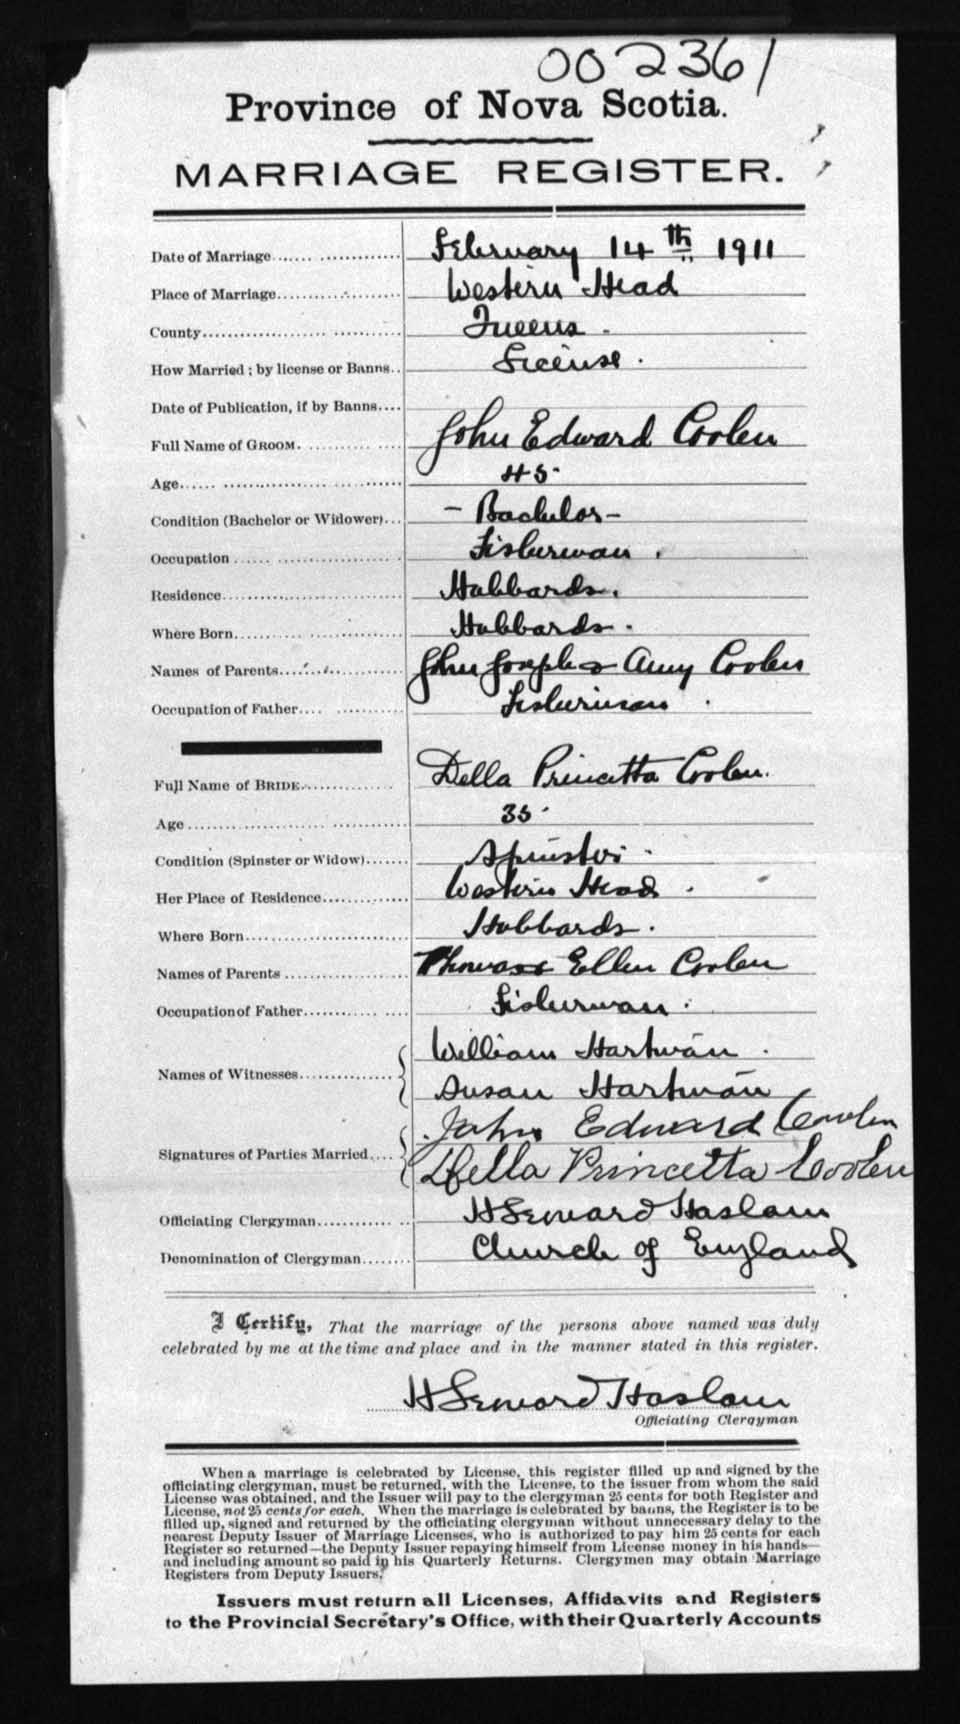 002361
Province of Nova Scotia.
MARRIAGE REGISTER.
Date of Marriage February 14th 1911
Place of Marriage Western Head
County Queens.
How Married; by license or Banns License.
Date of Publication, if by Banns
Full Name of GROOM John Edward Coolen
Age 45.
Condition (Bachelor or Widower) - Bachelor -
Occupation Fisherman.
Residence Hubbards.
Where Born Hubbards.
Names of Parents John Joseph & Amy Coolen
Occupation of Father Fisherman.
Full Name of BRIDE Della Princetta Coolen.
Age 35.
Condition (Spinster or Widow) Spinster.
Her Place of Residence Western Head.
Where Born Hubbards.
Names of Parents Thomas & Ellen Coolen
Occupation of Father Fisherman.
Names of Witnesses William Hartman.
Susan Hartman
Signatures of Parties Married John Edward Coolen
Della Princetta Coolen
Officiating Clergyman H Seward Haslam
Denomination of Clergyman Church of England
I Certify, That the marriage of the persons above named was duly
celebrated by me at the time and place and in the manner stated in this register.
H Seward Haslam
Officiating Clergyman
When a marriage is celebrated by License, this register filled up and signed by the
officiating clergyman, must be returned, with the License, to the issuer from whom the said
License was obtained, and the Issuer will pay to the clergyman 25 cents for both Register and
License, not 25 cents for each. When the marriage is celebrated by banns, the Register is to be
filled up, signed and returned by the officiating clergyman without unnecessary delay to the
nearest Deputy Issuer of Marriage Licenses, who is authorized to pay him 25 cents for each
Register so returned—the Deputy Issuer repaying himself from License money in his hands—
and including amount so paid in his Quarterly Returns. Clergymen may obtain Marriage
Registers from Deputy Issuers.
Issuers must return all Licenses, Affidavits and Registers
to the Provincial Secretary's Office, with their Quarterly Accounts